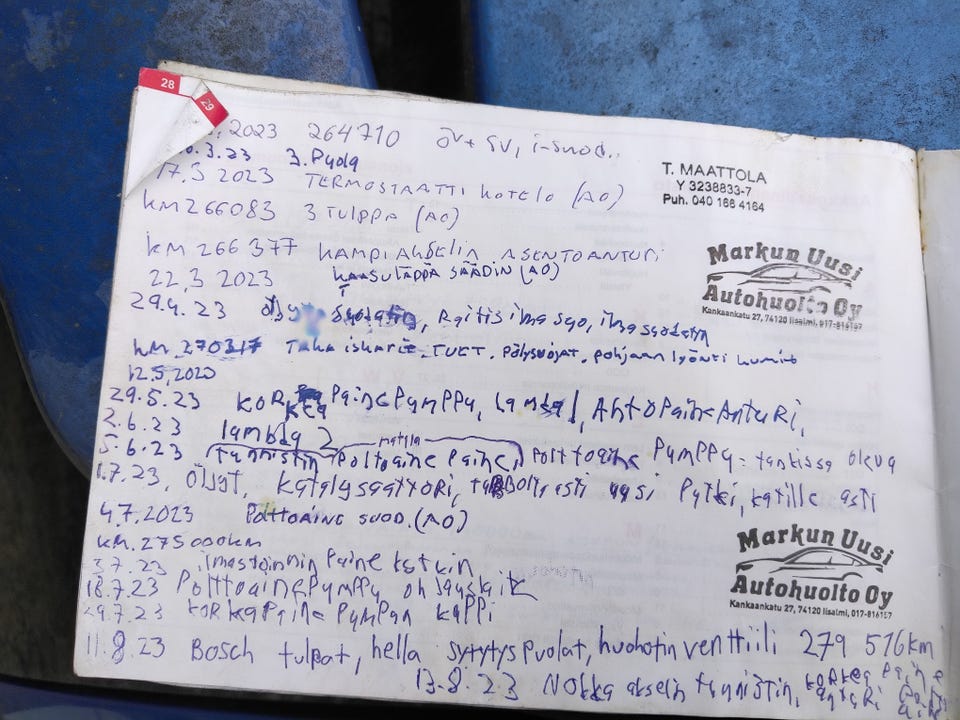 28
29
2023 264710 öv + sv, i-suod..
.3.23 3. Puola
17.3 2023 TERMOSTAATTI KOTELO (AO)
T. MAATTOLA
Y 3238833-7
Puh. 040 166 4164
km 266083 3 TULPPA (AO)
km 266 377 KAMPIAKSELIN ASENTOANTURI
22.3 2023 KAASULÄPPÄ SÄÄDIN (AO)
Markun Uusi
Autohuolto Oy
Kankaankatu 27, 74120 Iisalmi, 017-816157
29.4.23 Raitis ilma suo, ilmasuodatin
km. 270317 Taka iskarit, TUET, pölysuojat, pohjaan lyönti kumit
12.5,2020
29.5.23 KORKEA PainePumppu, AhtoPaineAnturi,
2.6.23 lambda 2
5.6.23 tunnistin matala Polttoaine Paine, Polttoaine Pumppu - tankissa oleva
1.7.23, Öljyt, katalysaattori, uusi Putki, katille asti
4.7.2023 Polttoaine SUOD. (AO)
km. 275000km
3.7.23 ilmastoinnin Paine kytkin
18.7.23 PolttoainePumppu ohjausyksik
29.7.23 korkeaPaine Pumpan kuppi
Markun Uusi
Autohuolto Oy
Kankaankatu 27, 74120 Iisalmi, 017-816157
11.8.23 Bosch tulpat, hella sytytyspuolat, huohotin venttiili 279 516 km
13.8.23 Nokka akselin tunnistin, korkea Paine anturi